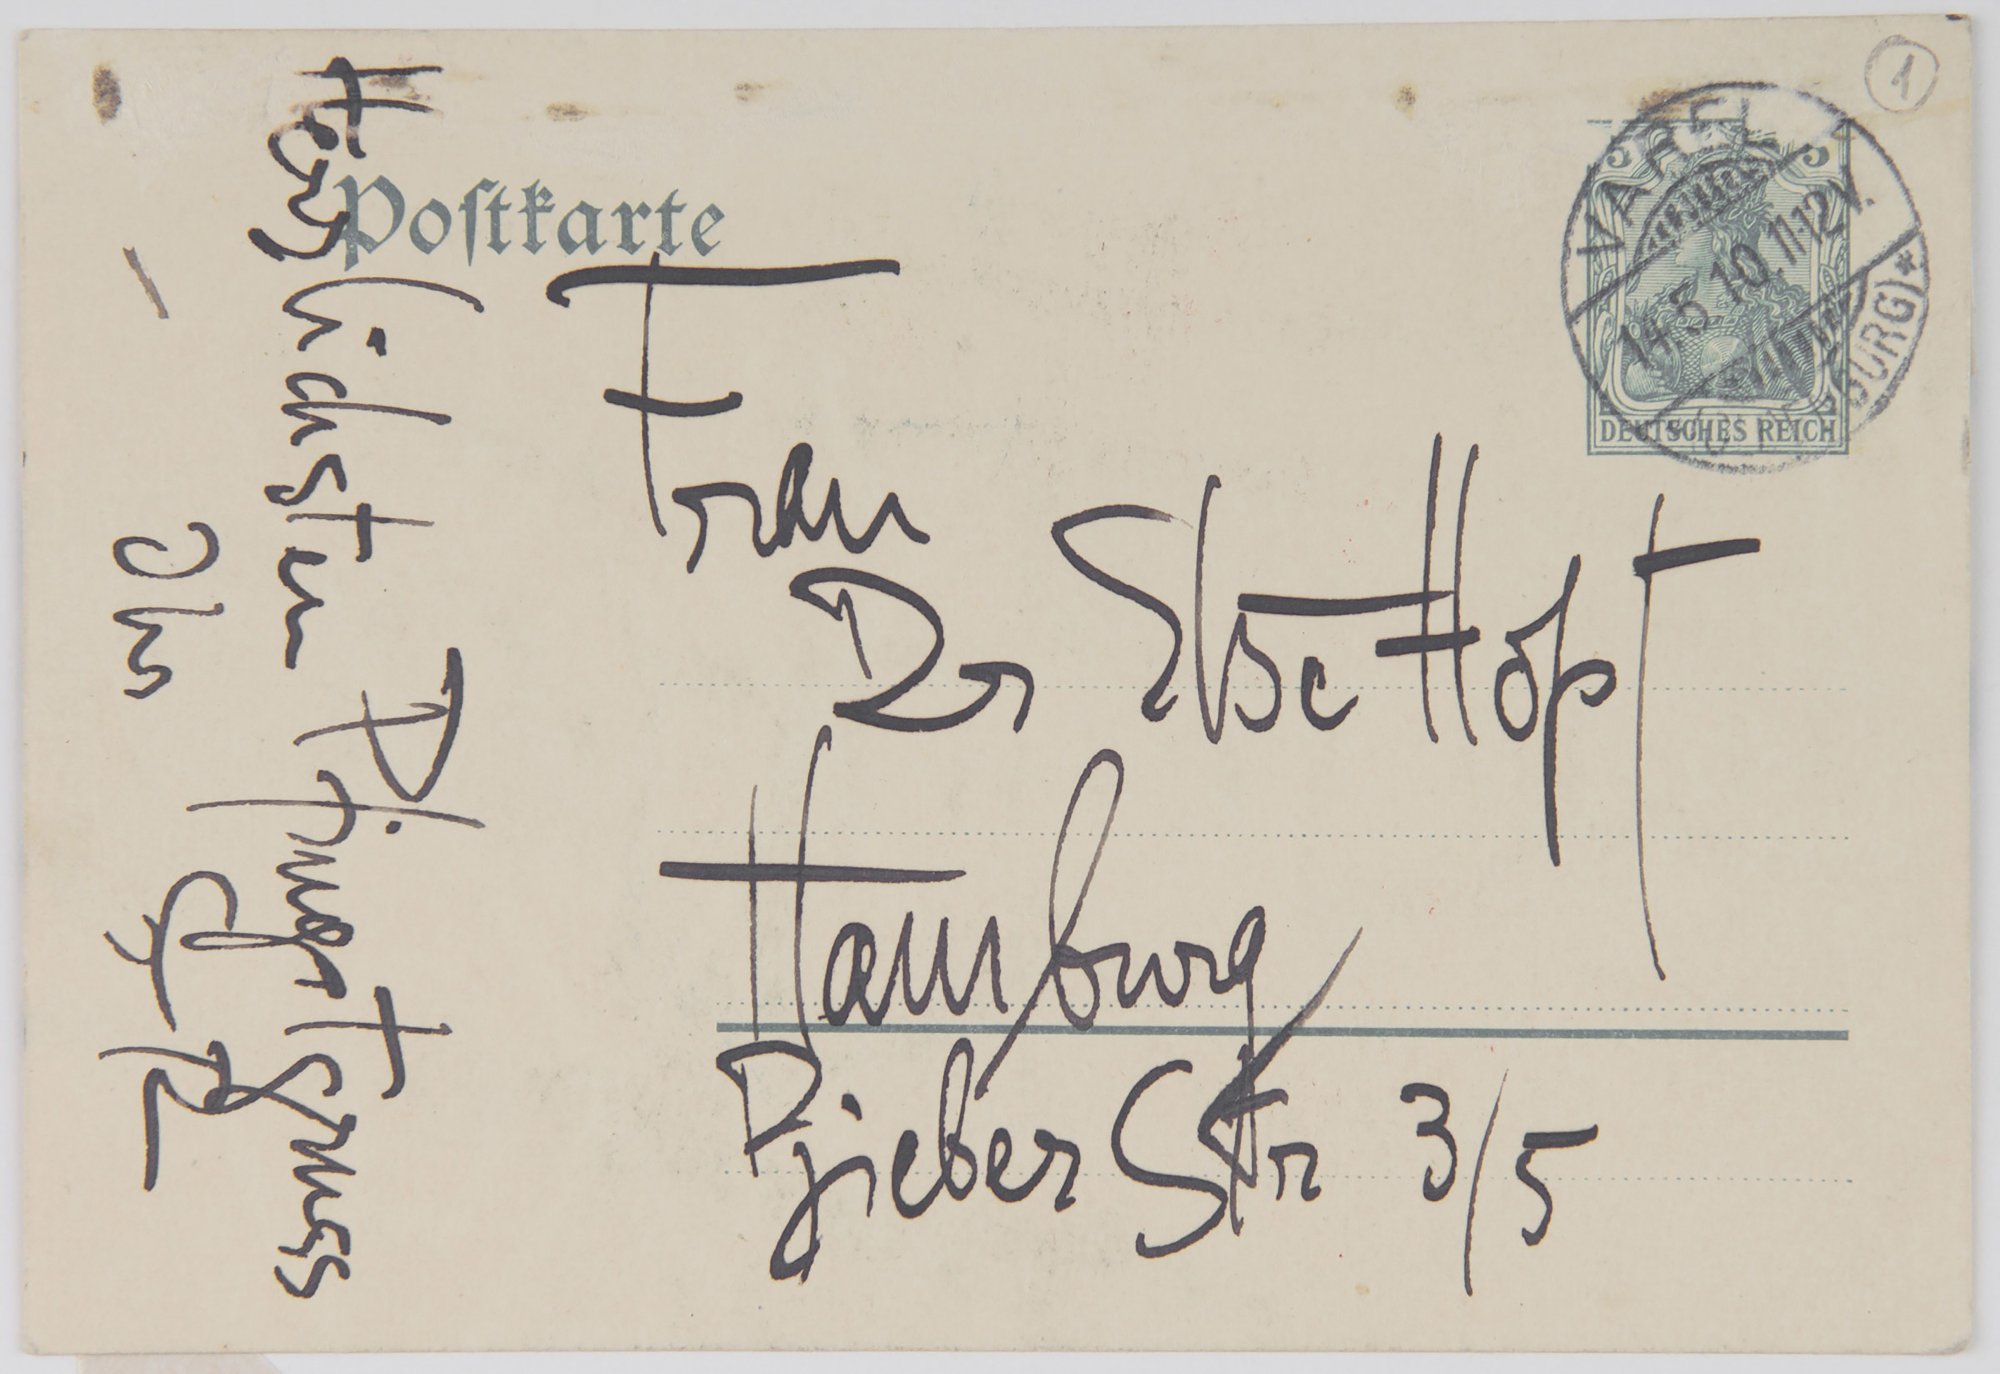 Postkarte
1
VAREL
14.5.10.11-12V.
(OLDENBURG)*
5 5
DEUTSCHES REICH
Frau
Dr Elbe Hopf
Hamburg
Pjieber Str 3/5
Herzlichsten Pfingstgruss
Ihr